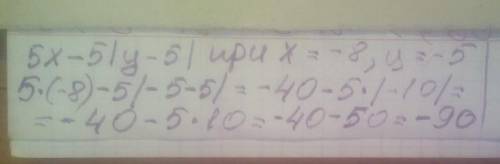 5х-5|у-5| при х=-8, у=-5
5·(-8)-5|-5-5|=-40-5·|-10|=
=-40-5·10=-40-50=-90